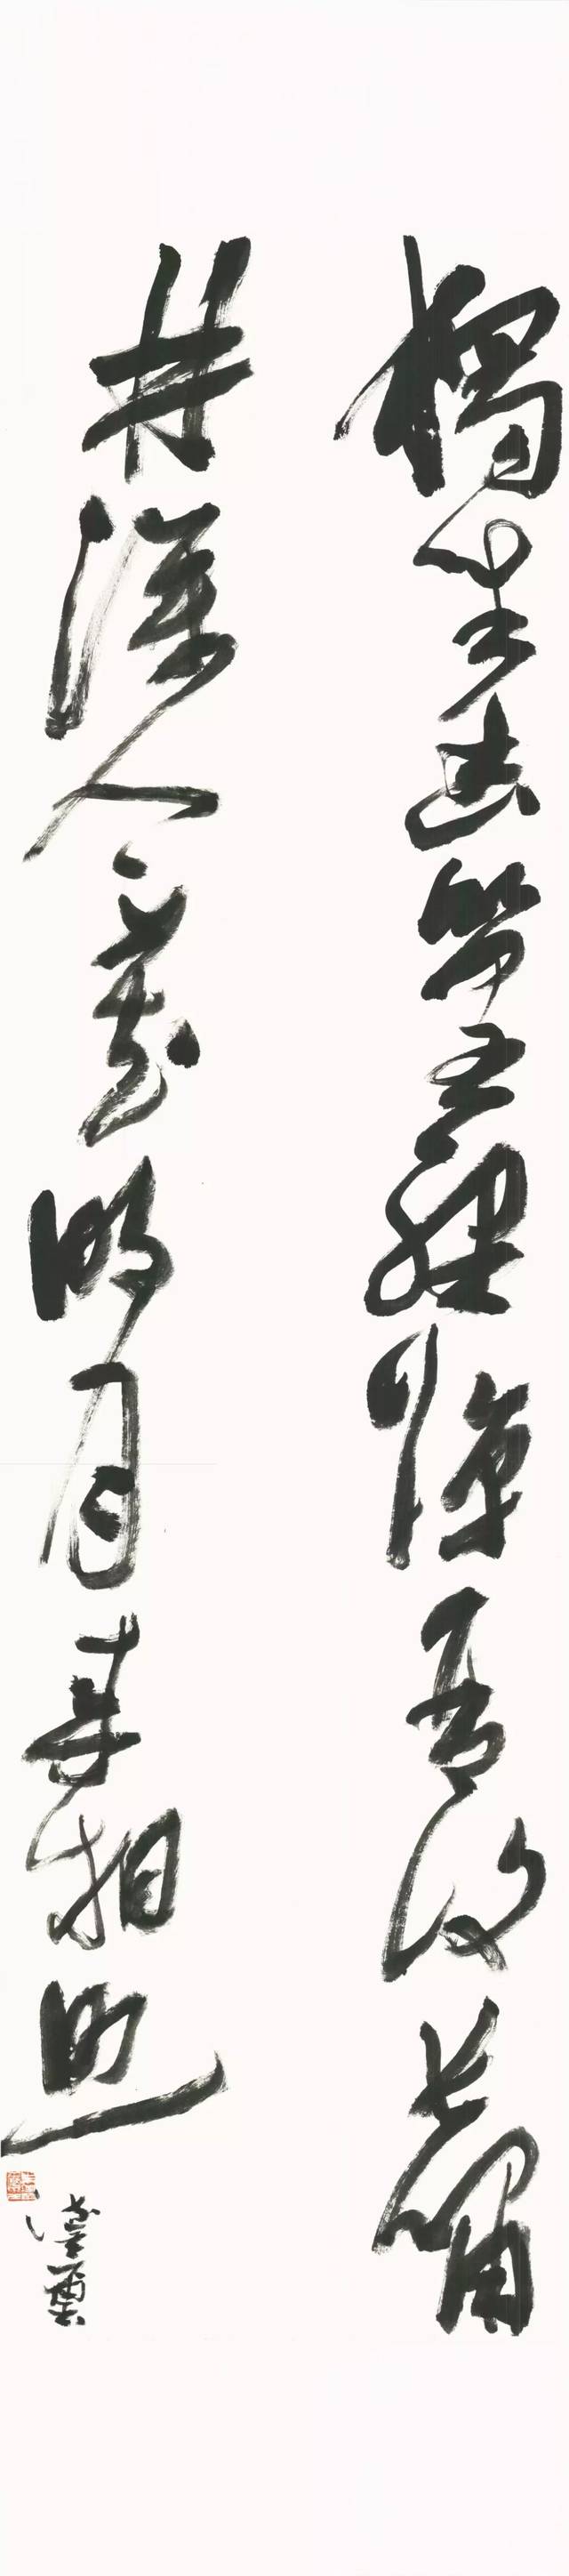 獨坐幽篁里彈琴復長嘯
林深人不知明月来相照